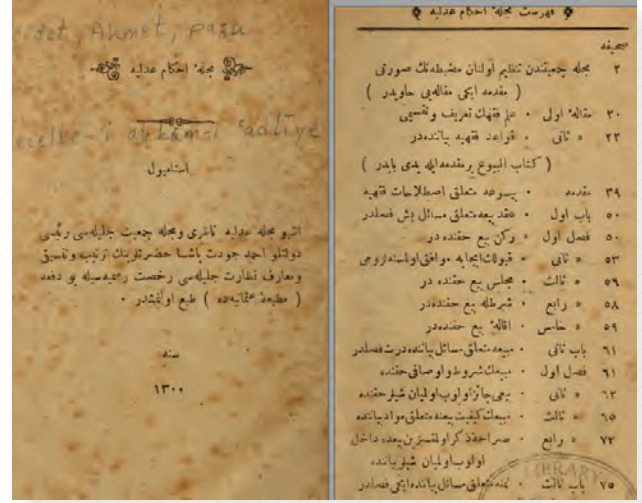 Ahmet, paşa
مجلهٔ احكام عدليه
ecelle-i aḥkâm-i ʿadlîye
استانبول
اشبو مجله عدليه ناظرى ومجله جمعيت جليله‌سى رئيسى
دولتلو احمد جودت پاشا حضرتلرينك ترتيب وتنسيق
ومعارف نظارت جليله‌سى رخصت رسميه‌سيله بو دفعه
( مطبعهٔ عثمانيه‌ده ) طبع اولنمشدر ٠
سنه
١٣٠٠
فهرست مجلهٔ احكام عدليه
صحيفه
٢ مجله جمعيتندن تنظيم اولنان مضبطه‌نك صورتى
( مقدمه ايكى مقاله‌يى حاويدر )
٢٠ مقالهٔ اول ٠ علم فقهك تعريف وتقسيمى
٢٢ » ثانى ٠ قواعد فقهيه بياننده‌در
( كتاب البيوع برمقدمه‌ايله يدى بابدر )
٣٩ مقدمه ٠ بيوعه متعلق اصطلاحات فقهيه
٥٠ باب اول ٠ عقد بيعه متعلق مسائل بش فصلدر
٥٠ فصل اول ٠ ركن بيع حقنده در
٥٣ » ثانى ٠ قبولك ايجابه موافق اولمسنه لزومى
٥٦ » ثالث ٠ مجلس بيع حقنده در
٥٨ » رابع ٠ شرطله بيع حقنده‌در
٥٩ » خامس ٠ اقالهٔ بيع حقنده‌در
٦١ باب ثانى ٠ مبيعه متعلق مسائل بياننده درت فصلدر
٦١ فصل اول ٠ مبيعك شروط و اوصافى حقنده
٦٢ » ثانى ٠ بيعى جائز اولوب اولميان شيلر حقنده
٦٥ » ثالث ٠ مبيعك كيفيت بيعنه متعلق مواد بياننده
٧٢ » رابع ٠ صراحة ذكر اولنمقسزين بيعده داخل
اولوب اولميان شيلر بياننده
٧٥ باب ثالث ٠ ثمنه متعلق مسائل بياننده ايكى فصلدر
LIBRARY